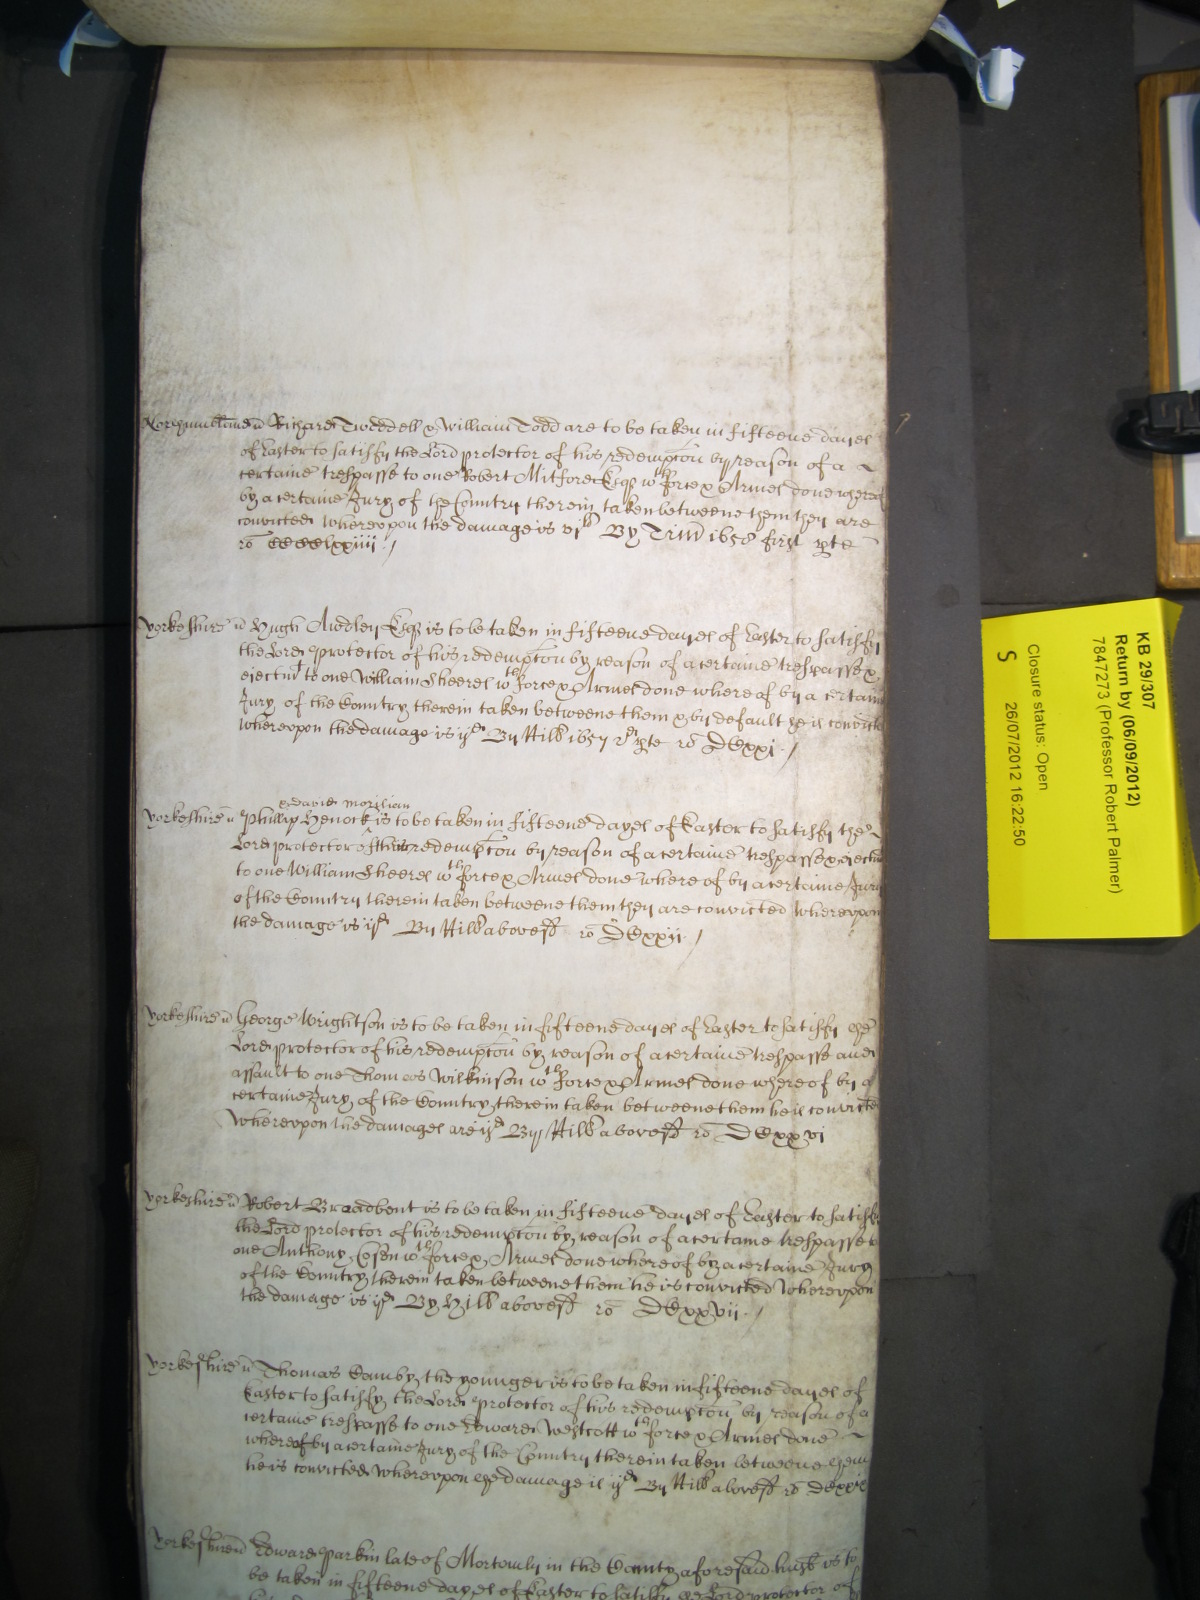 Northumbland Richard Tweddell & William Todd are to be taken in fifteene dayes
of Easter to satisfy the Lord protector of his redempcon by reason of a
certaine trespasse to one Robert Mitford Esqr wth force & Armes done whereof
by a certaine Jury of the Country therein taken betweene them they are
convicted whereupon the damage is By Trin 1658 first pte
ro CCCClxxiiii
Yorkeshire Hugh Audley Esqr is to be taken in fifteene dayes of Easter to satisfy
the Lord protector of his redempcon by reason of a certaine trespasse &
ejectmt to one William Sheeres wth force & Armes done where of by a certaine
Jury of the Country therein taken betweene them & by default he is convicted
whereupon the damage is ijd By Hill 1657 2d pte ro DCxxi
& david
Yorkeshire Phillip Henock is to be taken in fifteene dayes of Easter to satisfy the
Lord protector of his redempcon by reason of a certaine trespasse &
to one William Sheeres wth force & Armes done where of by a certaine Jury
of the Country therein taken betweene them they are convicted whereupon
the damage is ijd By Hill abovesd ro DCxxii
Yorkeshire George Wrightson is to be taken in fifteene dayes of Easter to satisfy the
Lord protector of his redempcon by reason of a certaine trespasse and
assault to one Thomas Wilkinson wth force & Armes done where of by a
certaine Jury of the Country therein taken betweene them he is convicted
Whereupon the damages are ijd By Hill abovesd ro DCxxvi
Yorkeshire Robert Broadbent is to be taken in fifteene dayes of Easter to satisfy
the Lord protector of his redempcon by reason of a certaine trespasse to
one Anthony wth force & Armes done where of by a certaine Jury
of the Country therein taken betweene them he is convicted Whereupon
the damage is ijd By Hill abovesd ro DCxxvii
Yorkeshire Thomas the younger is to be taken in fifteene dayes of
Easter to satisfy the Lord protector of his redempcon by reason of a
certaine trespasse to one Edward Westcott wth force & Armes done
whereof by a certaine Jury of the Country therein taken betweene them
he is convicted Whereupon the damage is ijd By Hill abovesd ro
Yorkeshire Edward Parkin late of Mortomly in the County aforesaid is to
be taken in fifteene dayes of Easter to satisfy the Lord protector of
KB 29/307
Return by (06/09/2012)
7847273 (Professor Robert Palmer)
Closure status: Open
26/07/2012 16:22:50
S